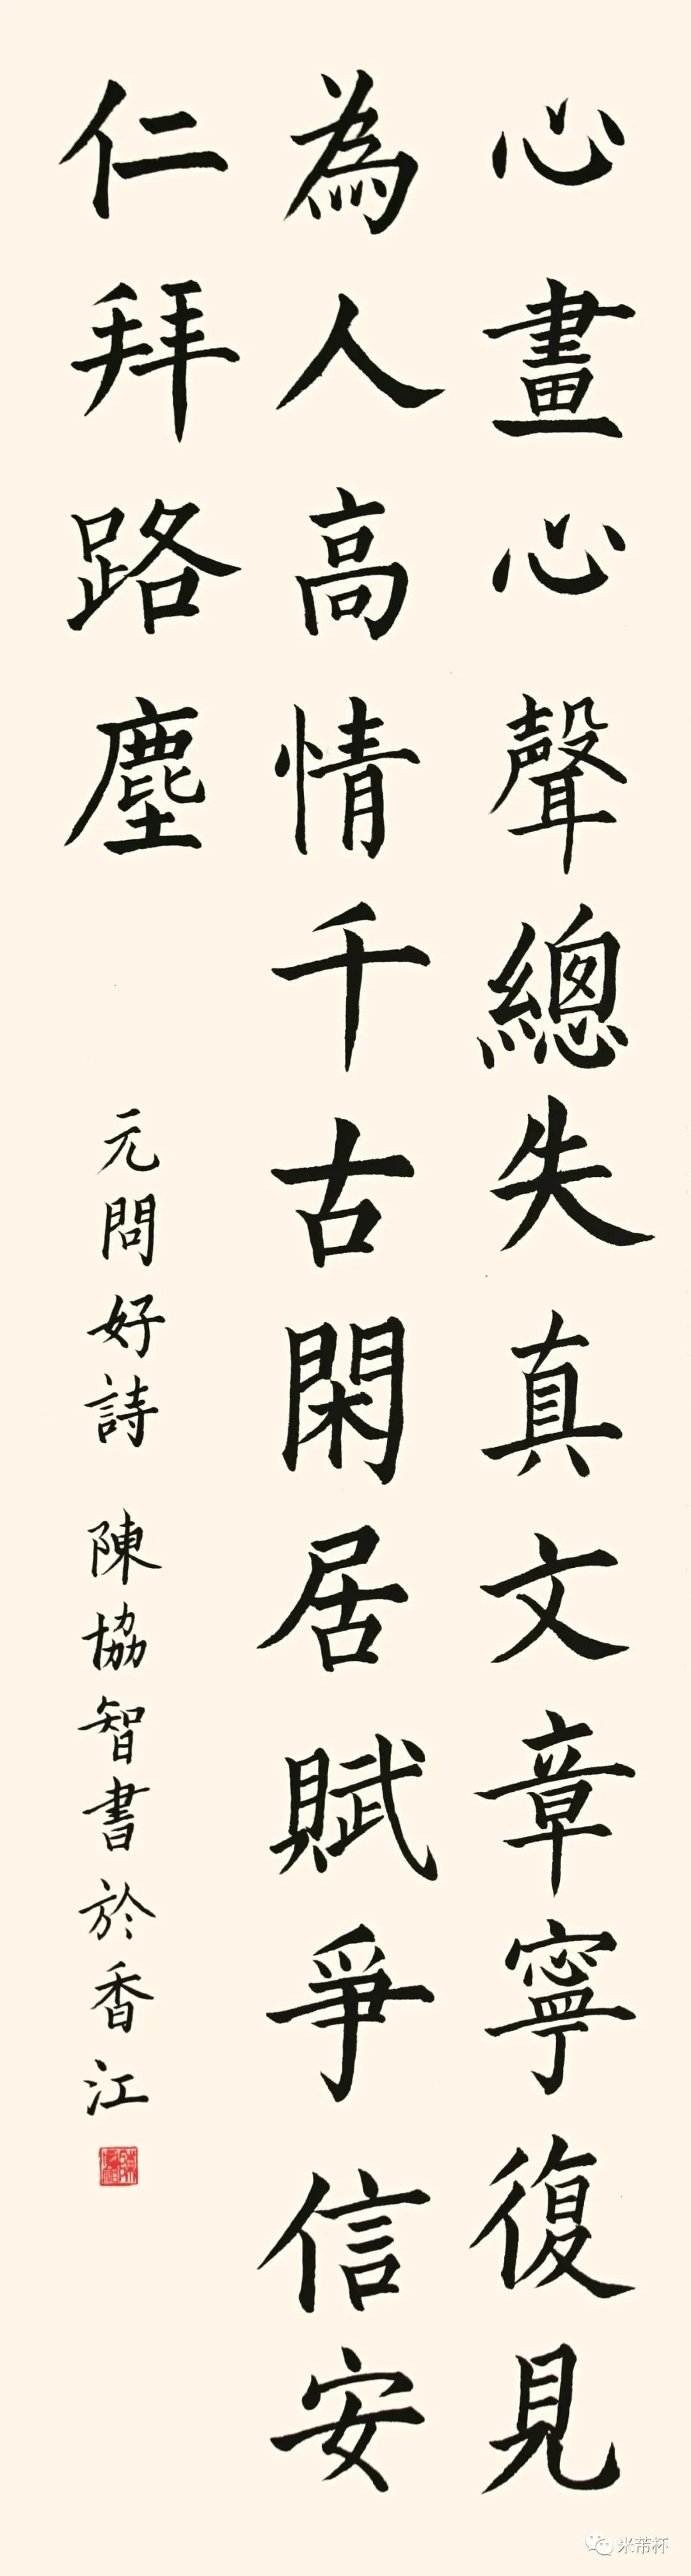 心畫心聲總失真文章寧復見
為人高情千古閑居賦爭信安
仁拜路塵
元問好詩 陳協智書於香江
米芾杯